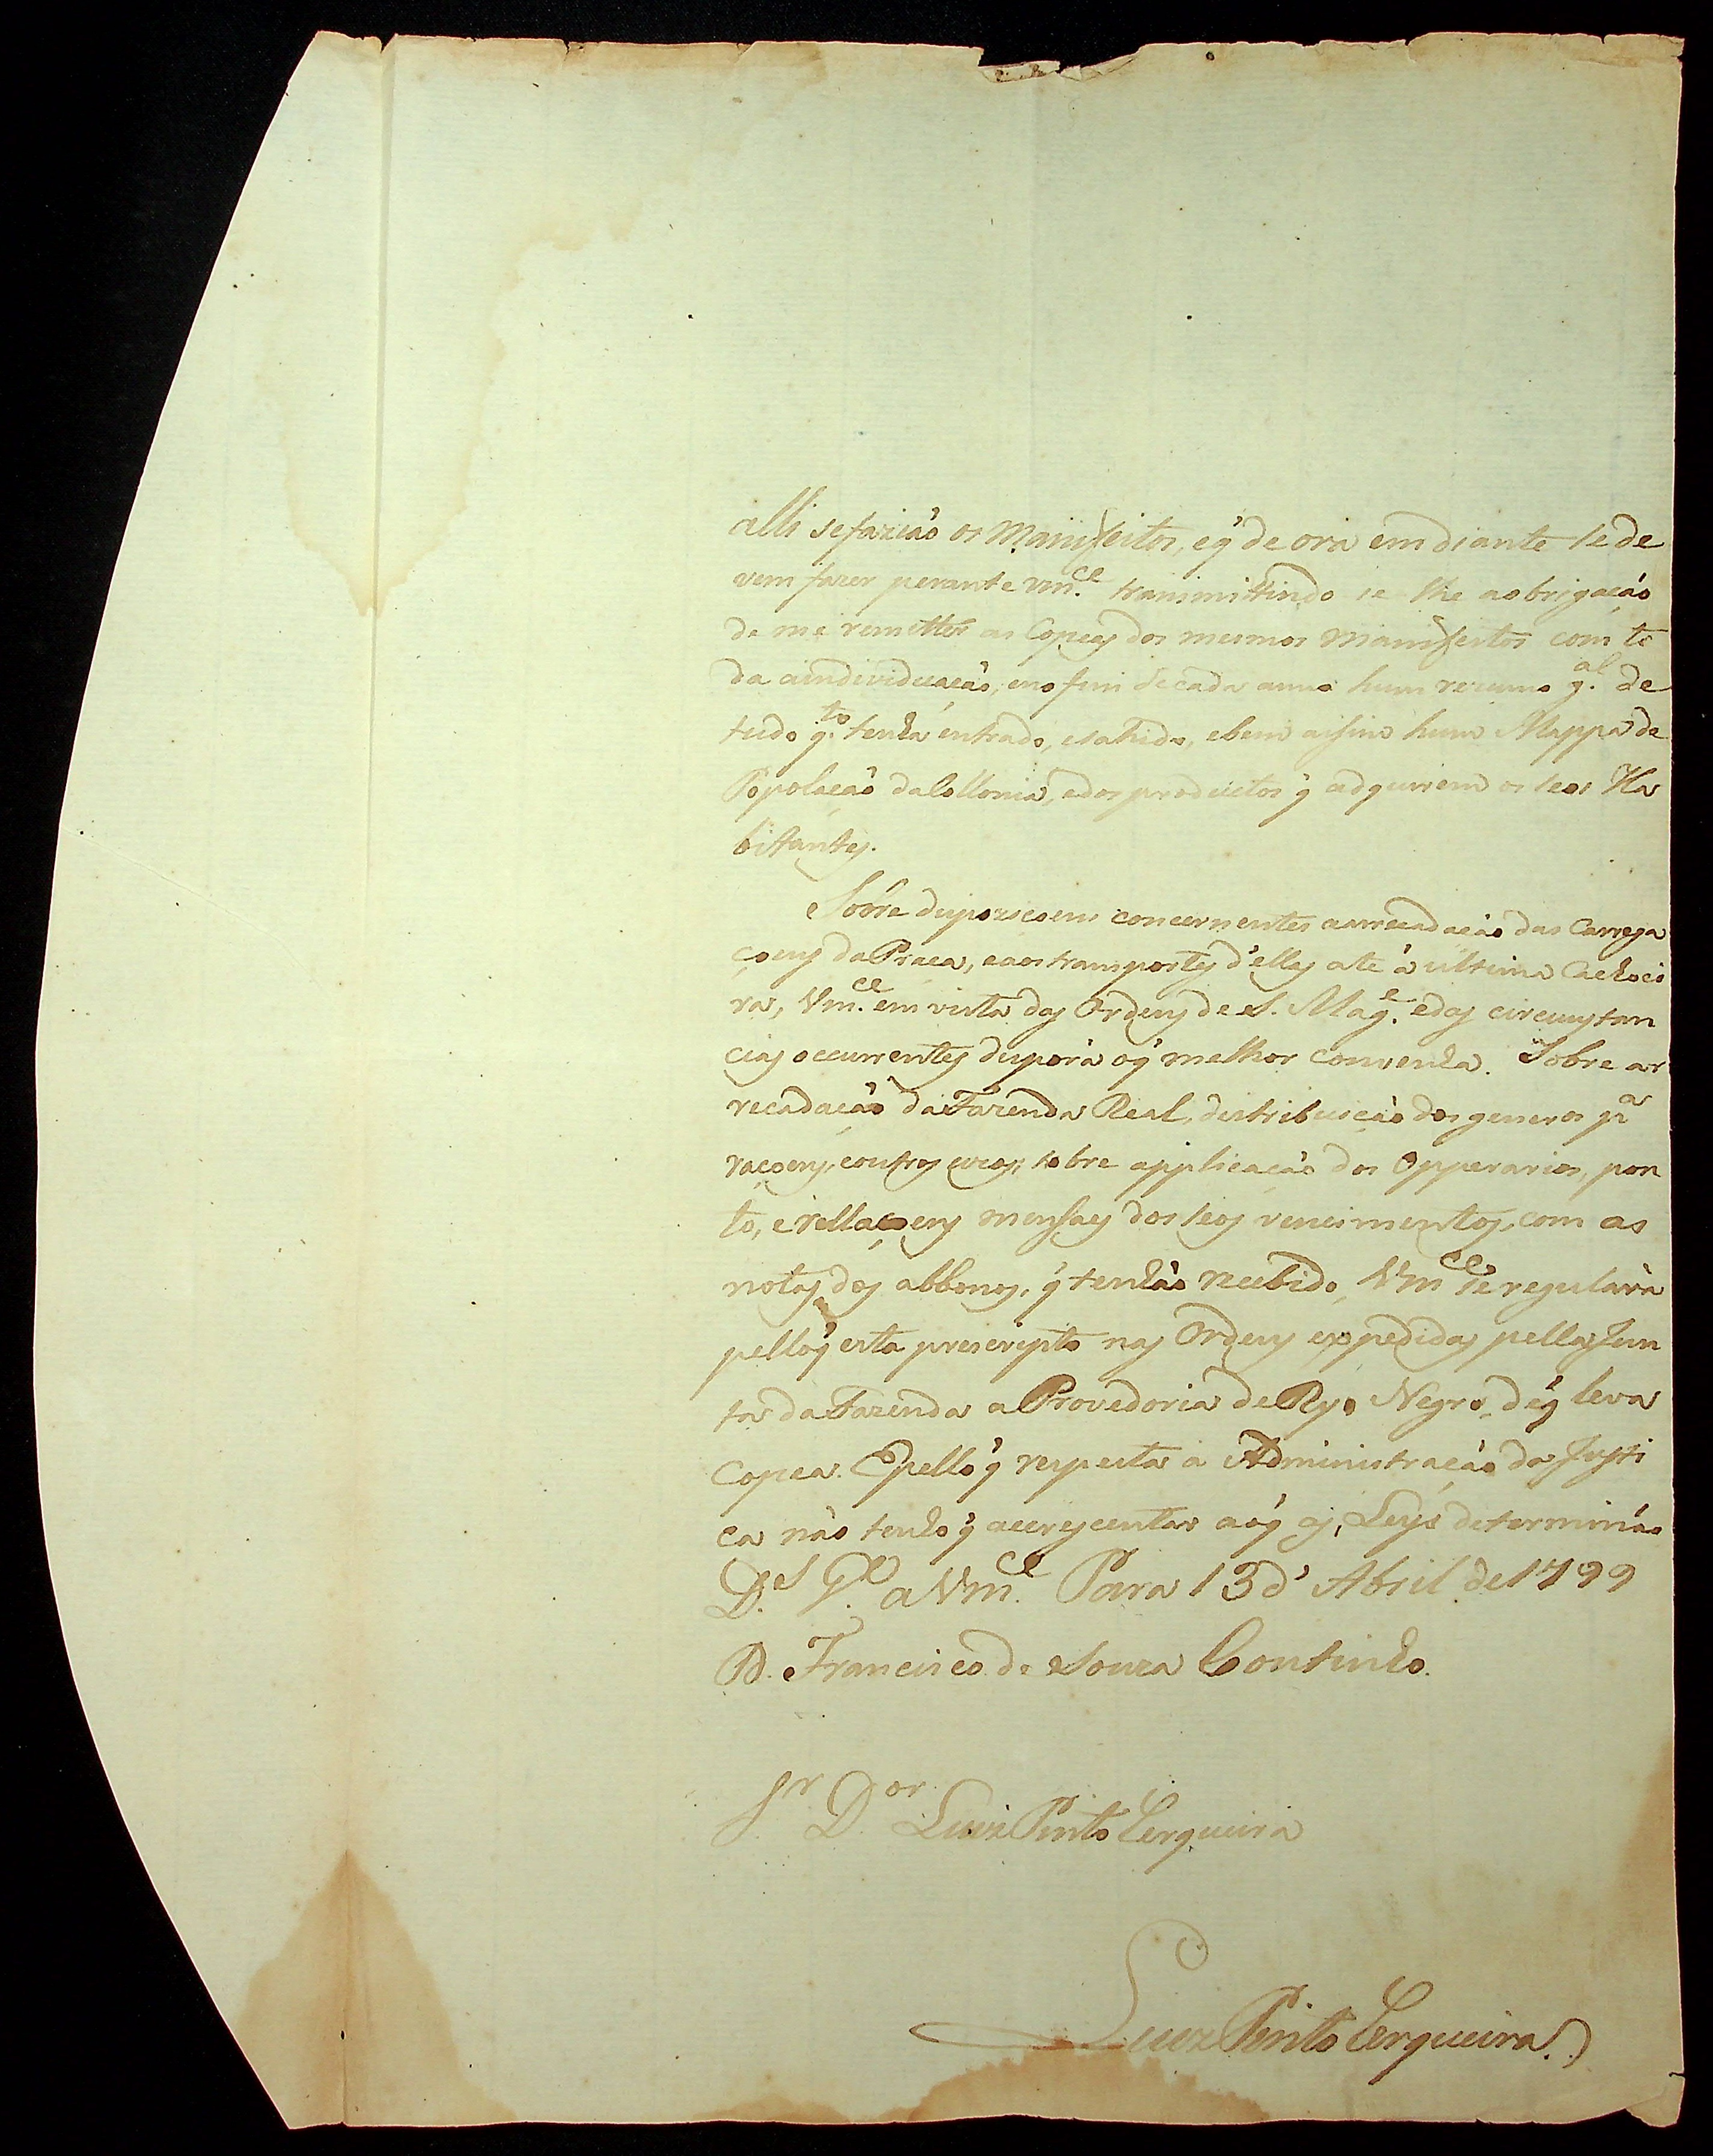 alli se fazião os Manifestos, e q̃ de ora em diante se de
vem fazer perante Vm.ce transmittindo se lhe a obrigação
de me remetter as Copeas dos mesmos Manifestos com to
da a individuação, e no fim de cada anno hum rezumo g.al de
tudo q.to tenha entrado, e sahido, e bem assim hum Mappa da
Popolação da Collonia, e dos productos q̃ adquirem os seos Ha
bitantes.
Sobre dispoziçoens concernentes a arrecadação das Carrega
çoens da Praça, e aos transportes d'ellas ate á ultima Cachoei
ra, Vm.ce em vista das Ordens de S. Mag.e e das circunstan
cias occurrentes disporá o q̃ melhor convenha. Sobre ar
recadação da Fazenda Real, destribuição dos generos p.a
raçoens, e outros uzos; sobre applicação dos Opperarios, pon
to, e rellaçoens mensaes dos seos vencimentos, com as
notas dos abbonos, q̃ tenhão recebido, Vm.ce se regulará
pello q̃ está prescripto nas Ordens expedidas pella Jun
ta da Fazenda a Provedoria de Ryo Negro, de q̃ leva
Copea. E pello q̃ respeita a Administração da Justi
ca não tenho q̃ accrescentar ao q̃ as Leys determinão
D.s G.e a Vm.ce Para 13 d' Abril de 1799
D. Francisco de Souza Coutinho.
S.r D.or Luiz Pinto Cerqueira
Luiz Pinto Cerqueira.